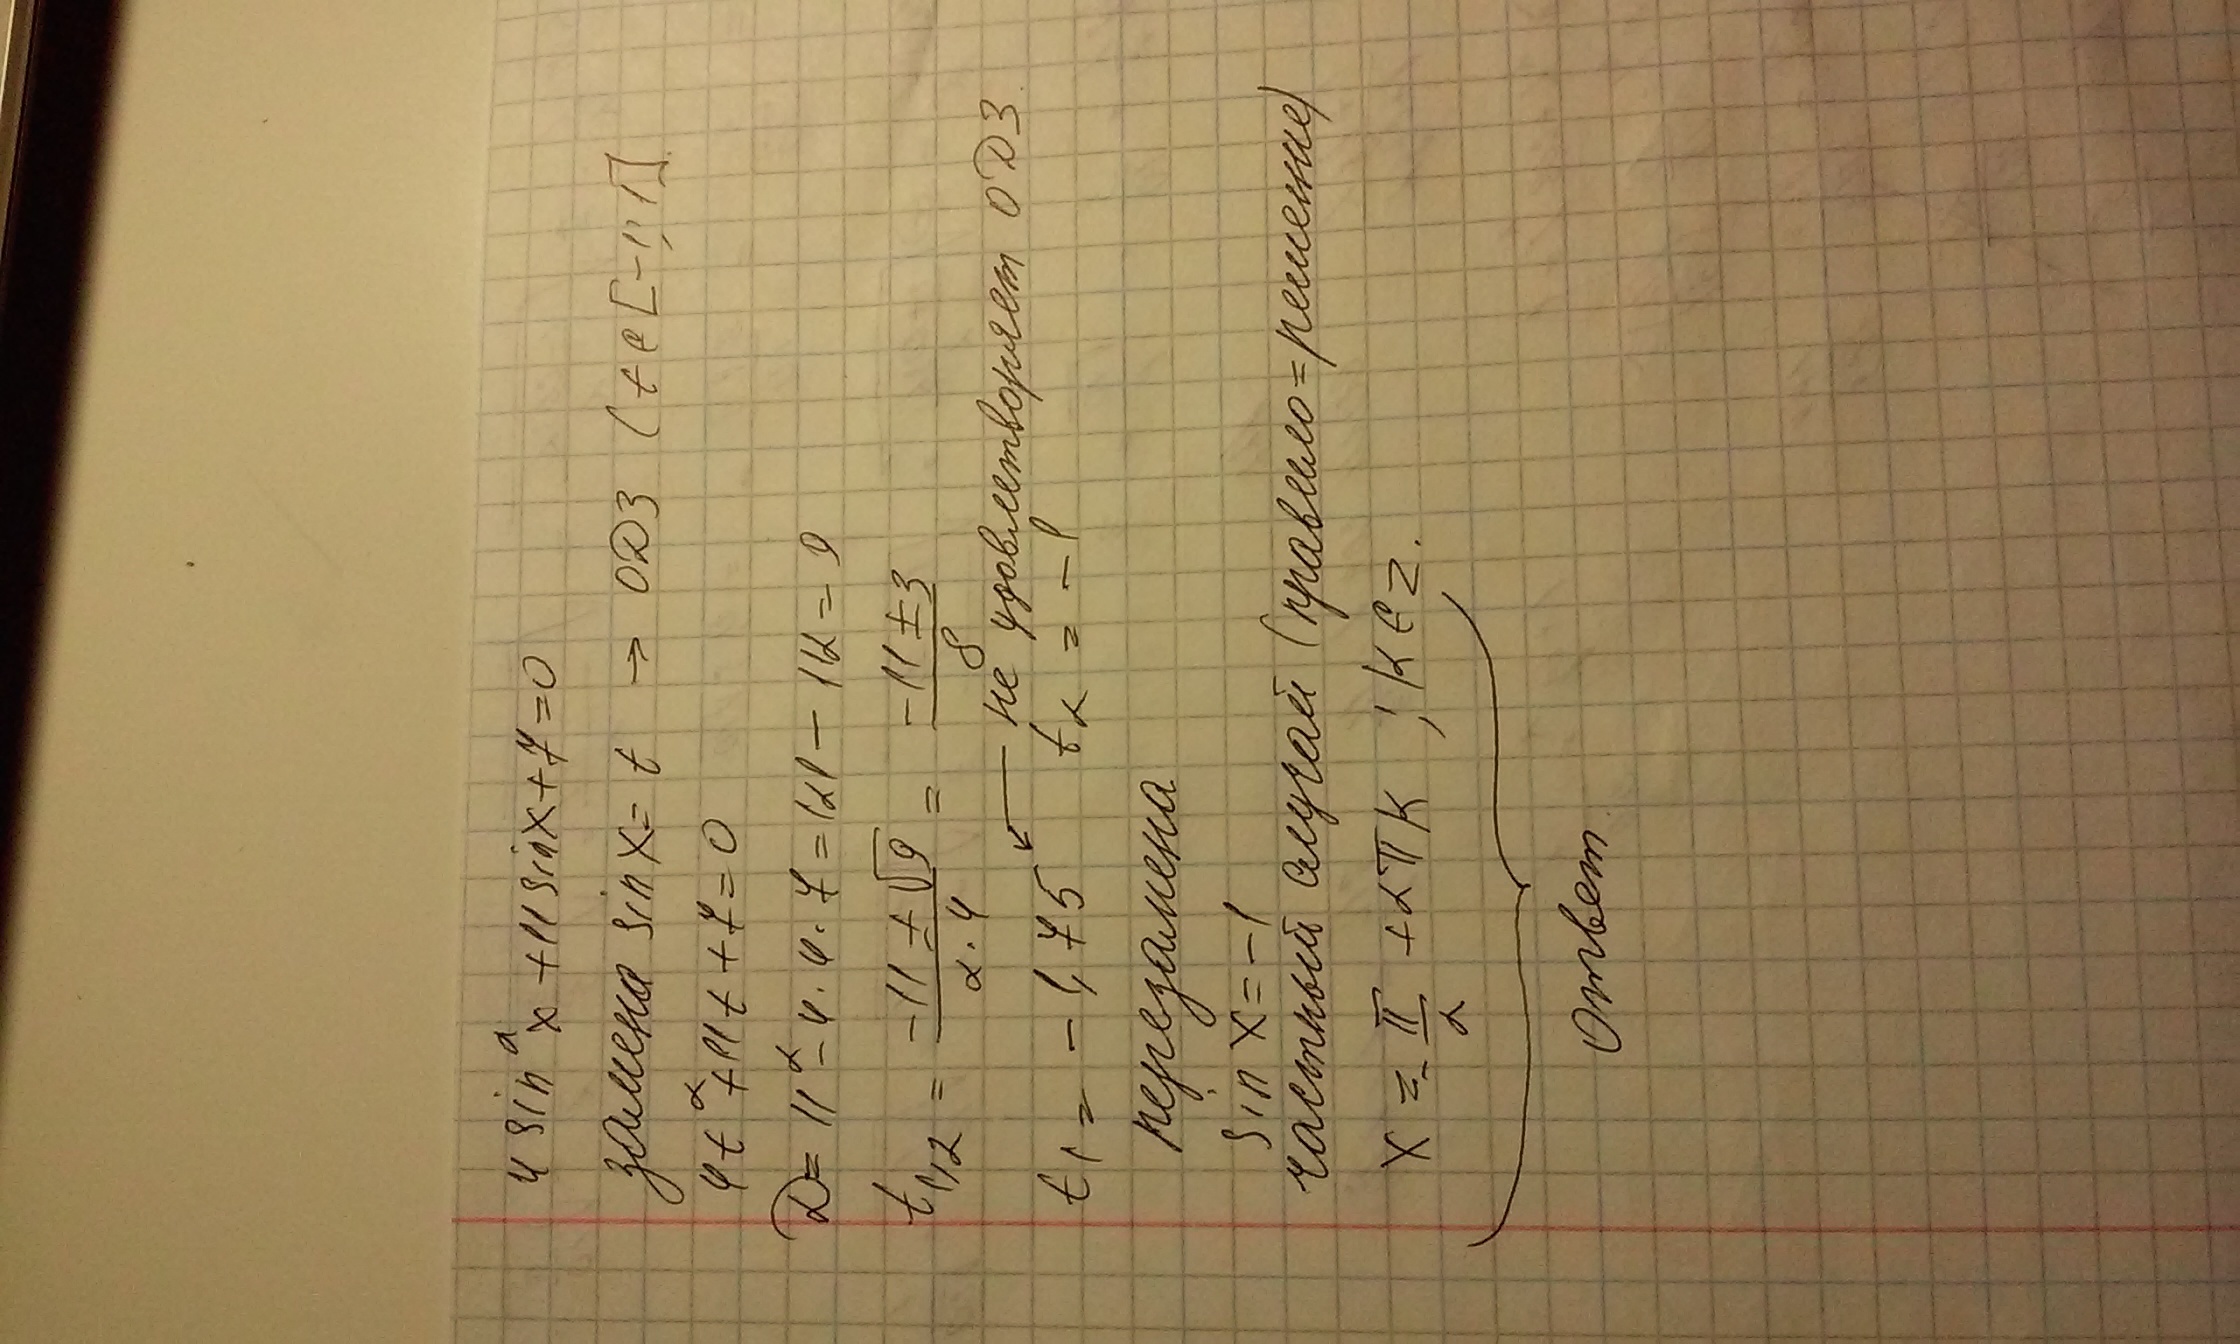 4 sin² x + 11 sin x + 7 = 0
замена sin x = t → ОДЗ (t ∈ [-1; 1]
4t² + 11t + 7 = 0
D = 11² - 4 · 4 · 7 = 121 - 112 = 9
t1,2 = (-11 ± √9) / (2 · 4) = (-11 ± 3) / 8
← не удовлетворяет ОДЗ
t1 = -1,75 t2 = -1
перезамена
sin x = -1
частный случай (правило = решение)
x = -π/2 + 2πk ; k ∈ Z.
Ответ